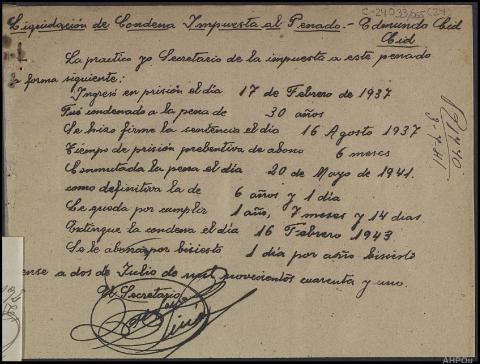 Liquidación de Condena Impuesta al Penado.- Edmundo Cid
Cid
La practico yo Secretario de la impuesta a este penado
forma siguiente:
Ingresó en prisión el día 17 de Febrero de 1937
Fué condenado a la pena de 30 años
Se hizo firme la sentencia el día 16 Agosto 1937
Tiempo de prisión prebentiva de abono 6 meses
Conmutada la pena el día 20 de Mayo de 1941.
como definitiva la de 6 años y 1 día
Le queda por cumplir 1 año, 7 meses y 14 dias
Extingue la condena el día 16 Febrero 1943
Se le abona por bisiesto 1 día por año bisiesto
ense a dos de Julio de mil novecientos cuarenta y uno.
El Secretario
AHPOu